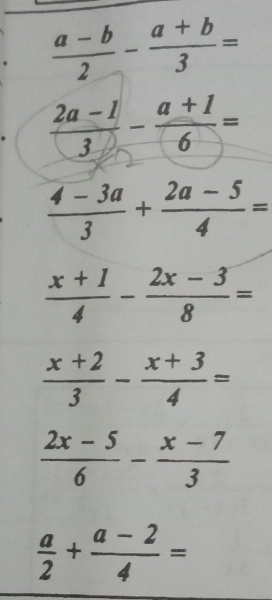 (a − b)/2 − (a + b)/3 =
(2a − 1)/3 − (a + 1)/6 =
(4 − 3a)/3 + (2a − 5)/4 =
(x + 1)/4 − (2x − 3)/8 =
(x + 2)/3 − (x + 3)/4 =
(2x − 5)/6 − (x − 7)/3
a/2 + (a − 2)/4 =